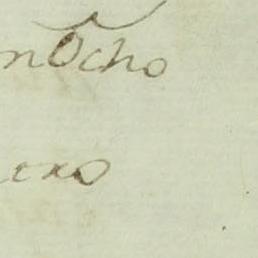 n Ocho
ero